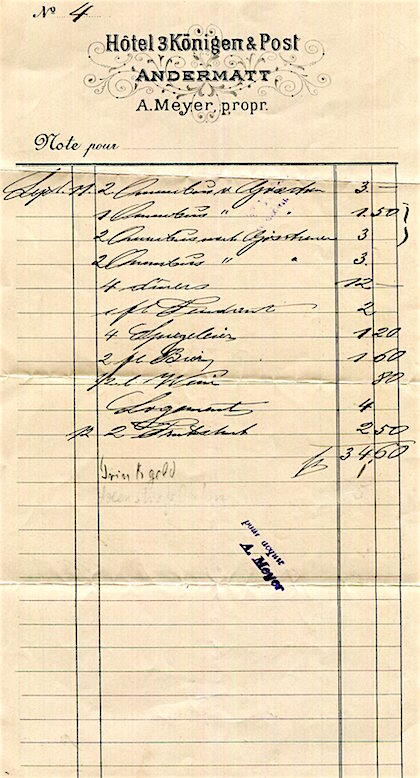 No 4
Hôtel 3 Königen & Post
ANDERMATT
A. Meyer, propr.
Note pour
Sept. 11. 2 Omnibus v. Göschen 3.–
1 Omnibus " " 1.50
2 Omnibus nach Göschenen 3
2 Omnibus " " 3.
4 diners 12 –
1 fl. Fendant 2
4 Spiegeleier 1 20
2 fl Bier 1 60
Wein 80
Logement 4
12 2 Frühstück 2 50
fr 34 60
Trinkgeld 1
pour acquit
A. Meyer